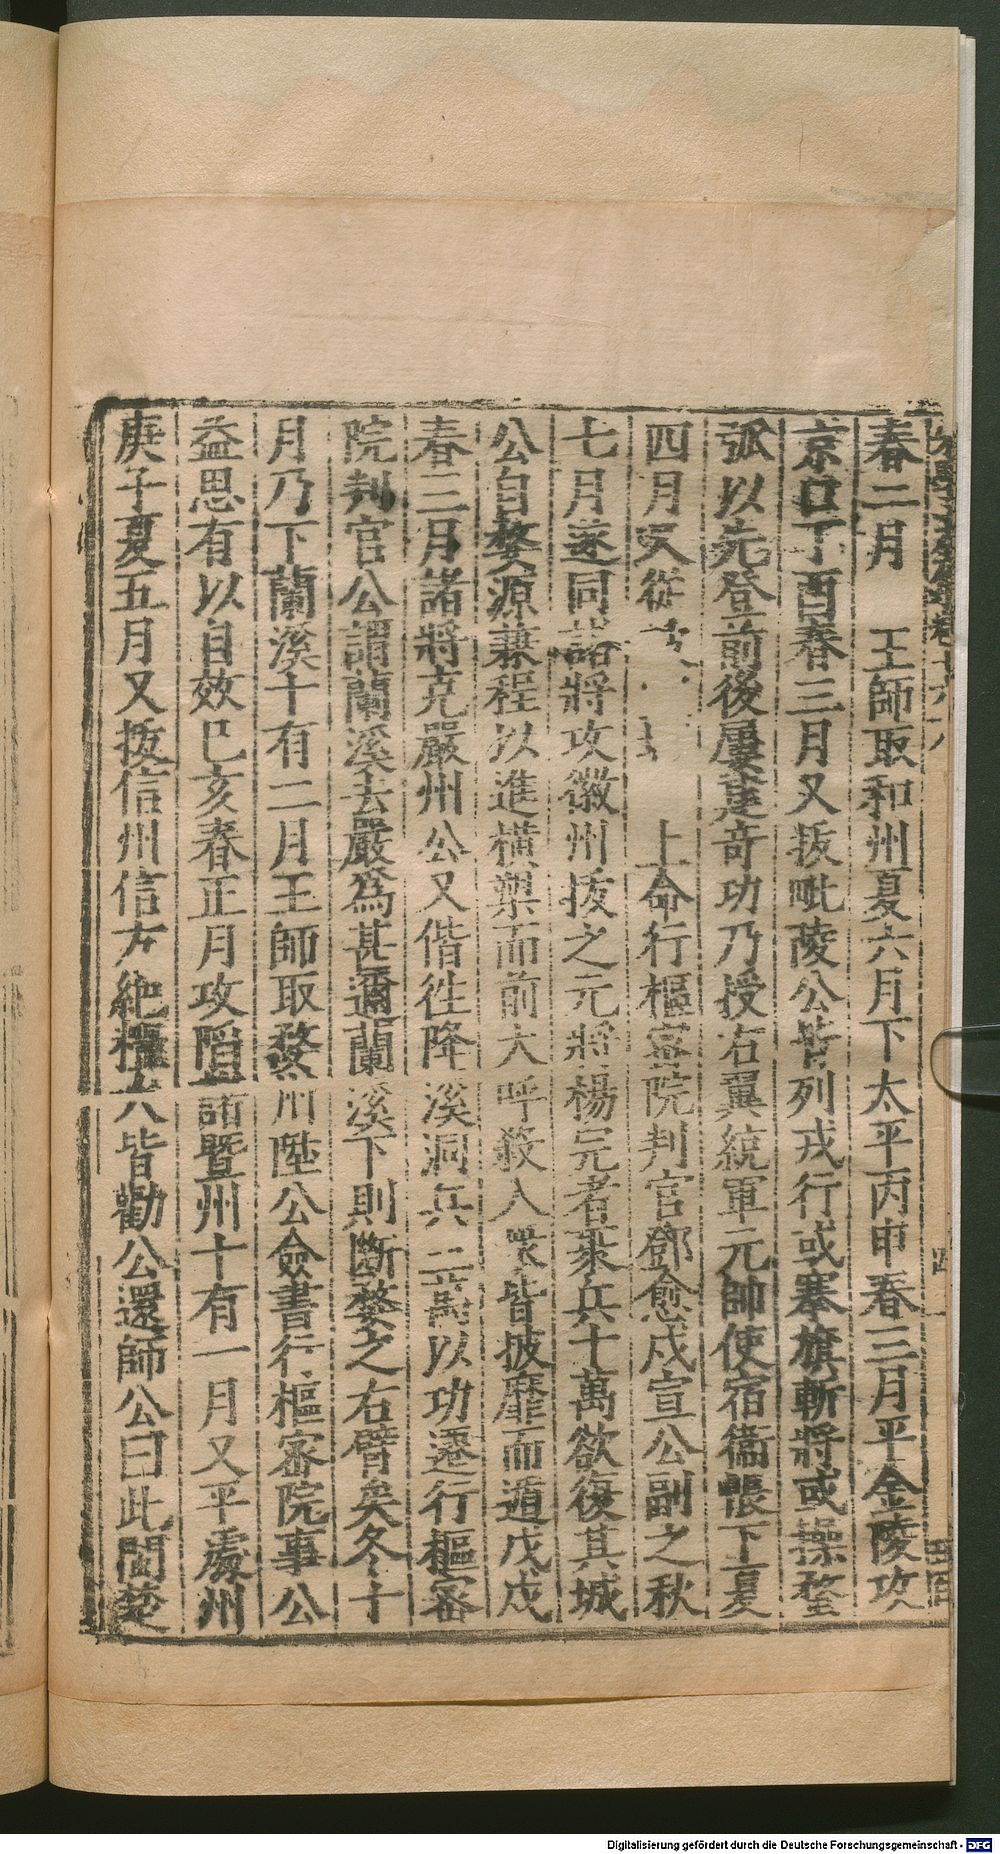 春二月　王師取和州夏六月下太平丙申春三月平金陵攻
京口丁酉春三月又拔毗陵公皆列戎行或搴旗斬將或操蝥
弧以先登前後屢建奇功乃授右翼統軍元帥使宿衞帳下夏
四月又從　上命行樞密院判官鄧愈戍宣公副之秋
七月遂同諸將攻徽州拔之元將楊完者來兵十萬欲復其城
公自婺源兼程以進橫槊而前大呼殺入衆皆披靡而遁戊戌
春三月諸將克嚴州公又偕徃降溪洞兵二萬以功遷行樞密
院判官公謂蘭溪去嚴爲甚邇蘭溪下則斷婺之右臂矣冬十
月乃下蘭溪十有二月王師取婺州陞公僉書行樞密院事公
益思有以自效巳亥春正月攻諸暨州十有一月又平處州
庚子夏五月又拔信州信方絶糧人皆勸公還師公曰此閩楚
Digitalisierung gefördert durch die Deutsche Forschungsgemeinschaft - DFG